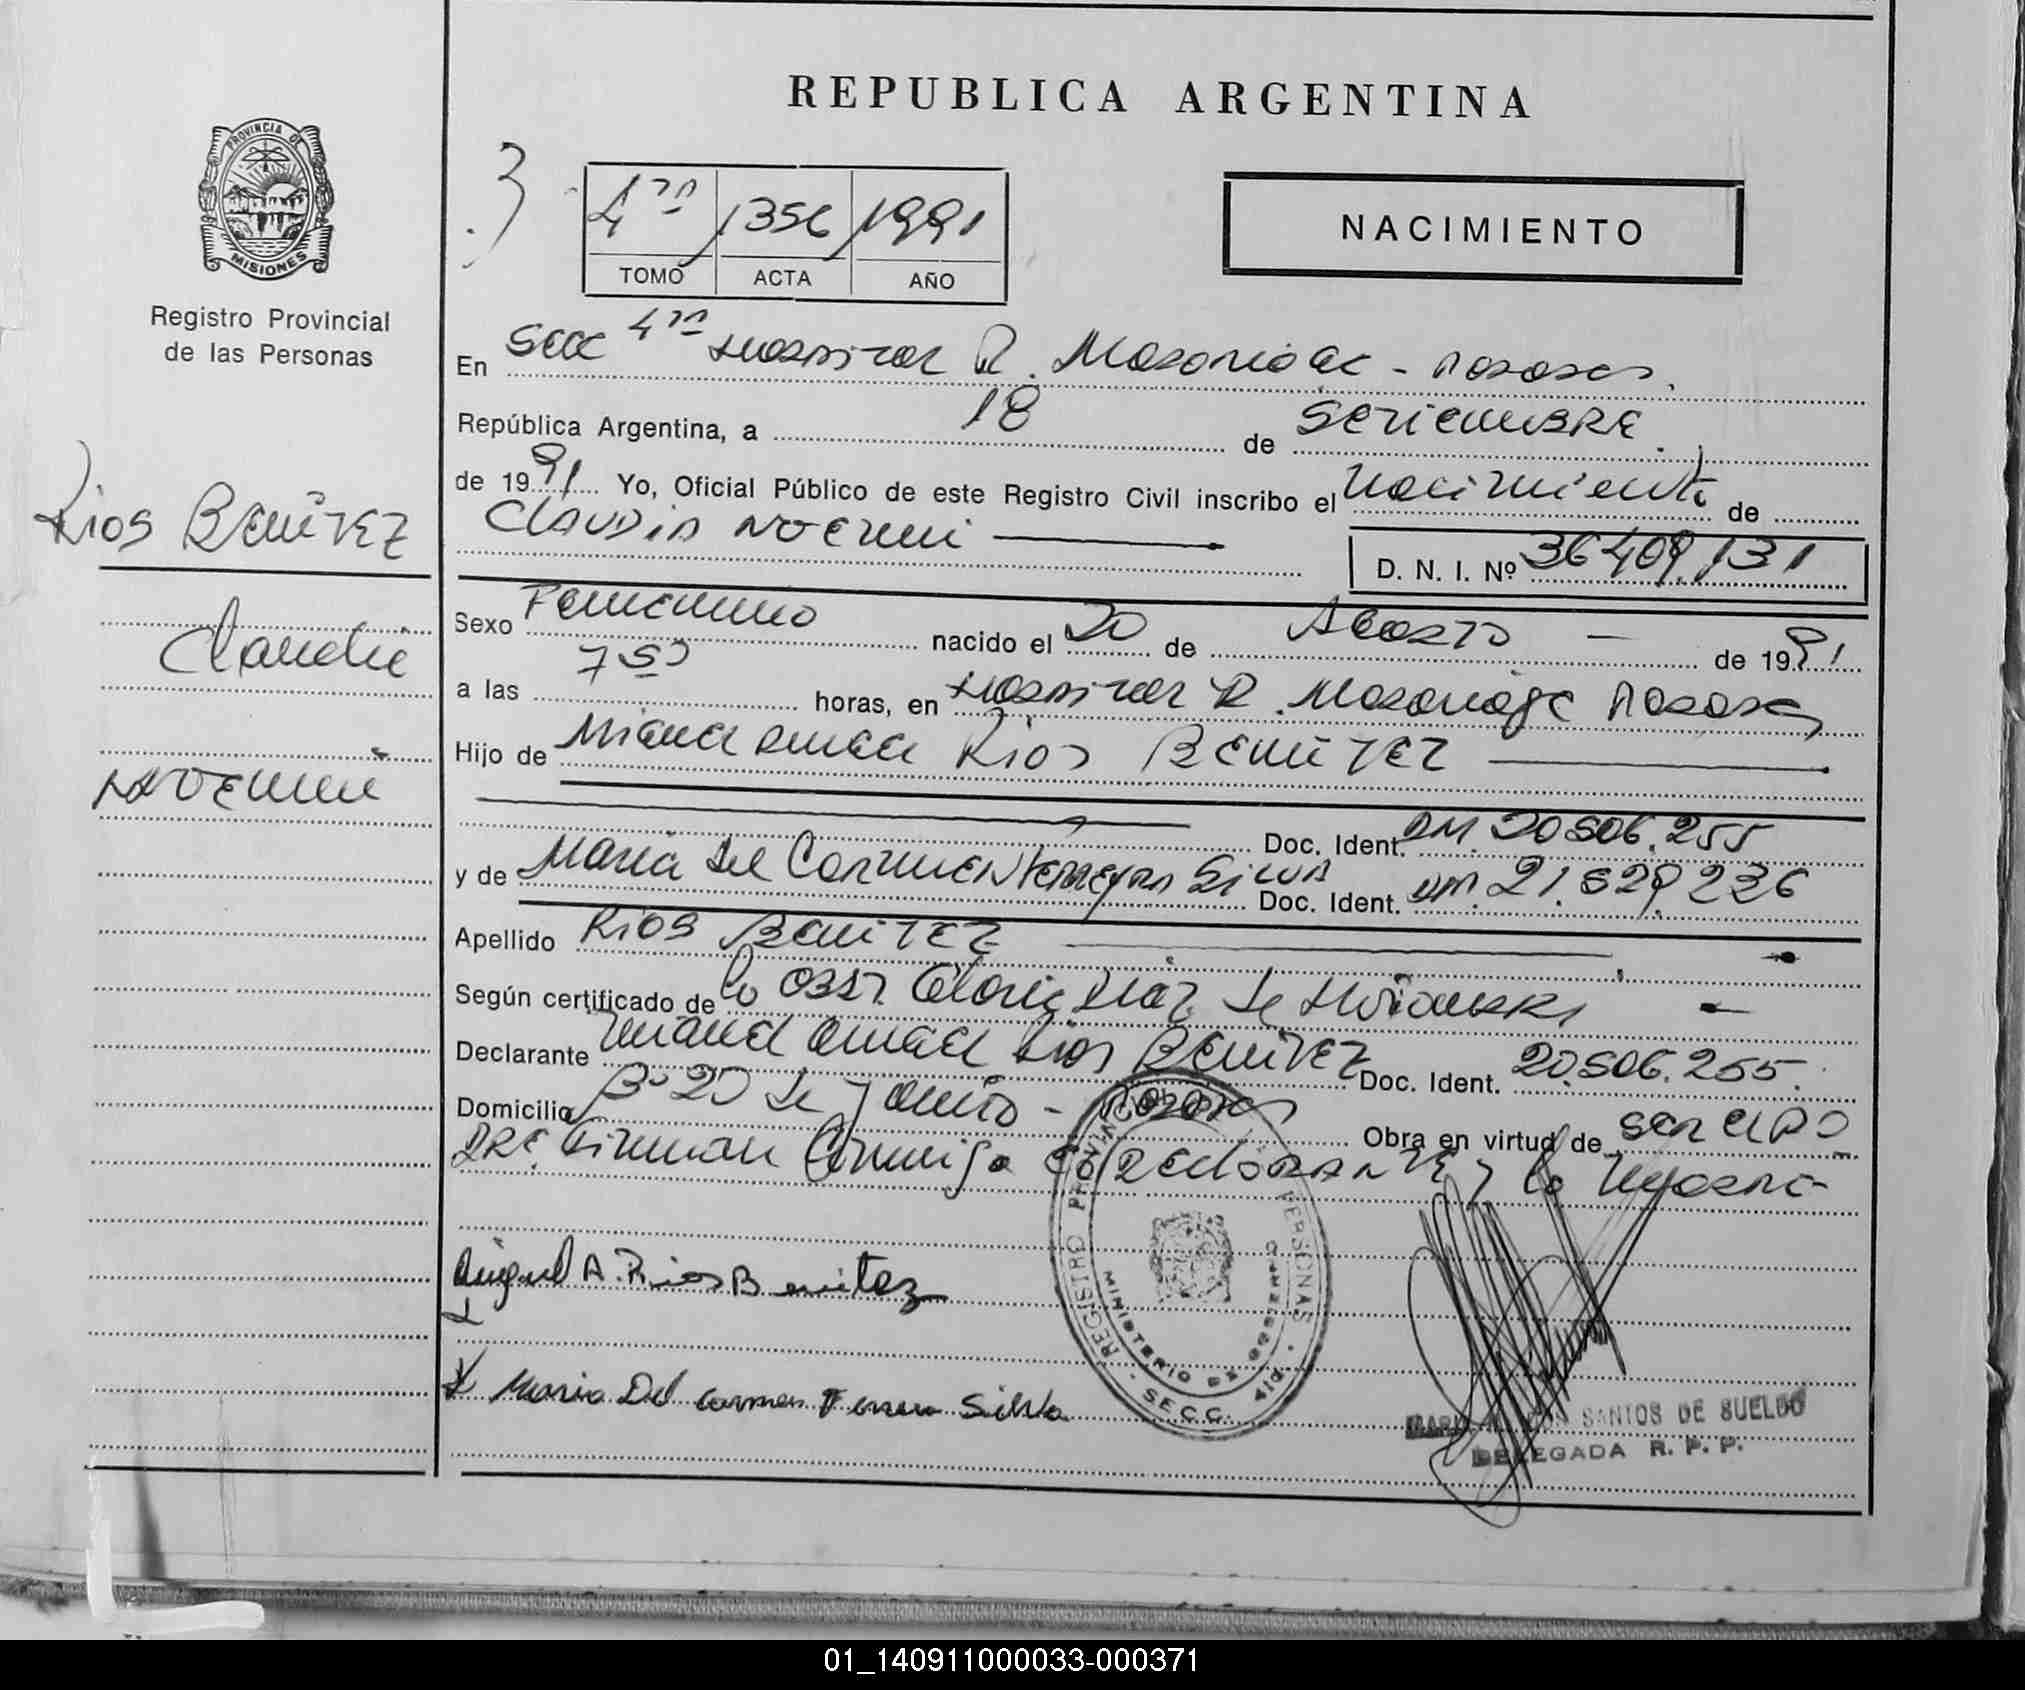 REPUBLICA ARGENTINA
PROVINCIA DE
MISIONES
Registro Provincial
de las Personas
3
4ta 1356 1991
TOMO ACTA AÑO
NACIMIENTO
En Secc 4ta Hospital R. Madariaga - Posadas.
República Argentina, a 18 de SETIEMBRE.
de 1991 Yo, Oficial Público de este Registro Civil inscribo el Nacimiento de
CLAUDIA NOEMI
D. N. I. Nº 36409.131
Rios BENITEZ
Claudia
NOEMI
Sexo Femenino nacido el 20 de AGOSTO de 1991
a las 7 50 horas, en Hospital R. Madariaga Posadas
Hijo de Miguel Rios BENITEZ
Doc. Ident. DM. 20506.255
y de Maria del Carmen Ferreyra Silva Doc. Ident. DM. 21.829.236
Apellido RIOS BENITEZ
Según certificado de la Obst Gloria Diaz de
Declarante Miguel Rios BENITEZ Doc. Ident. 20.506.255.
Domicilio Bº 20 de Junio - Posadas Obra en virtud de ser el PD
DRE. Firman Conmigo El Declarante y la
Miguel A. Rios Benitez
X Maria Del Carmen Ferreira Silva
REGISTRO PROVINCIAL DE LAS PERSONAS
MINISTERIO DE GOBIERNO
SECC. 4ta.
SANTOS DE SUELDO
DELEGADA R. P. P.
01_140911000033-000371